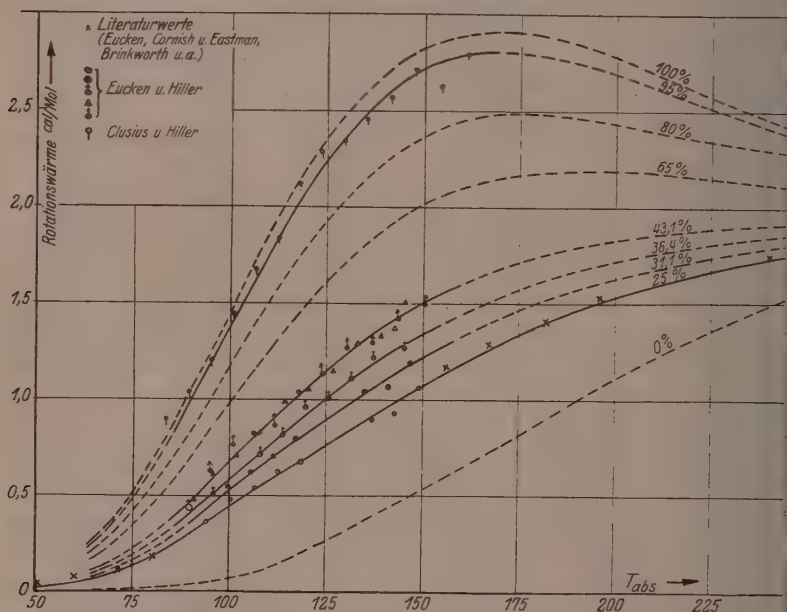 × Literaturwerte
(Eucken, Cornish u. Eastman,
Brinkworth u.a.)
Eucken u. Hiller
Clusius u Hiller
Rotationswärme cal/Mol
2,5
2,0
1,5
1,0
0,5
0
100%
95%
80%
65%
43,1%
36,4%
31,1%
25%
0%
T abs
50 75 100 125 150 175 200 225